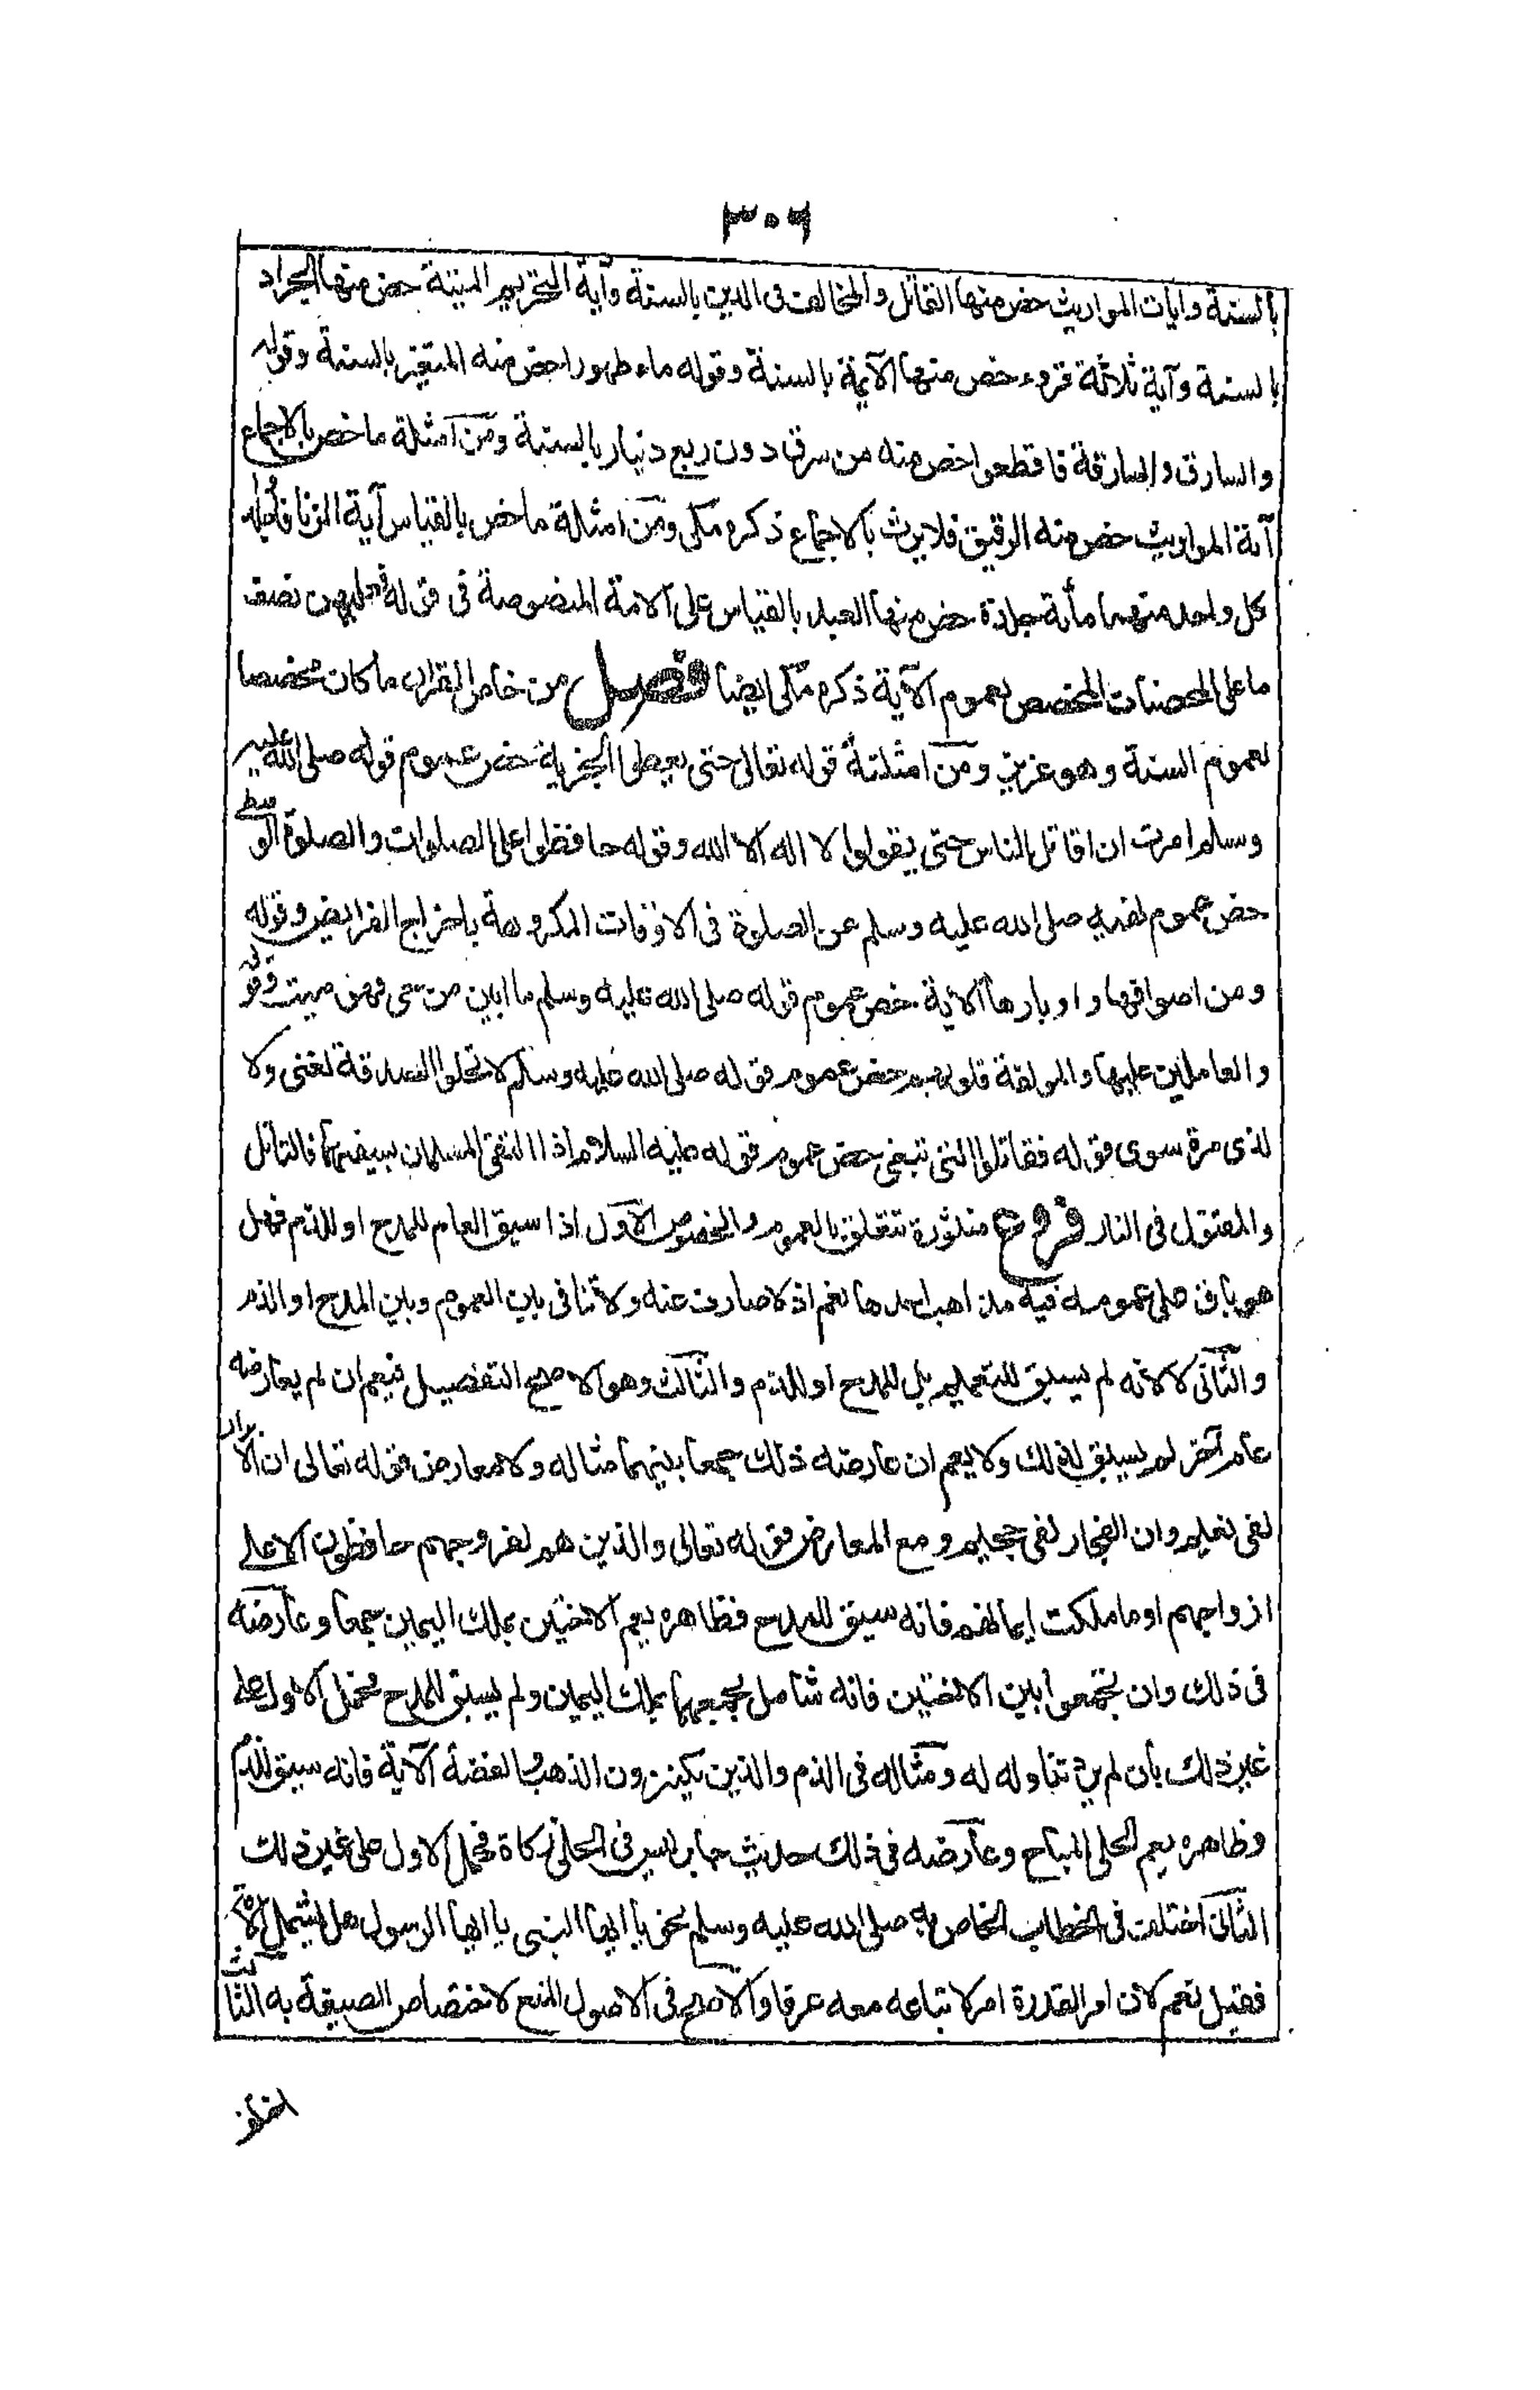 ٣٠٦
بالسنة وايات المواريث خص منها القاتل والمخالف فى الدين بالسنة وآية التحريم الميتة خص منها الجراد
بالسنة وآية ثلاثة قروء خص منها الآمة بالسنة وقوله ماء طهورا خص منه المتغير بالسنة وقوله
والسارق والسارقة فاقطعوا خص منه من سرق دون ربع دنيار بالسنة ومن امثلة ما خص بالاجماع
آية المواريث خص منه الرقيق فلا يرث بالاجماع ذكره مكى ومن امثلة ما خص بالقياس آية الزنا فاجلدوا
كل واحد منهما مأئة جلدة خص منها العبد بالقياس على الامة المنصوصة فى قوله فعليهن نصف
ما على المحصنات المخصص لعموم الآية ذكره مكى ايضا فصل من خاص القران ما كان مخصصا
لعموم السنة وهو عزيز ومن امثلته قوله تعالى حتى يعطوا الجزية خص عموم قوله صلى الله عليه
وسلم امرت ان اقاتل الناس حتى يقولوا لا اله الا الله وقوله حافظوا على الصلوات والصلوة الوسطى
خص عموم نهيه صلى الله عليه وسلم عن الصلوة فى الاوقات المكروهة باخراج الفرايض وقوله
ومن اصوافها واوبارها الآية خص عموم قوله صلى الله عليه وسلم ما ابين من حى فهو ميت وقوله
والعاملين عليها والمولفة قلوبهم خص عموم قوله صلى الله عليه وسلم لا تحلوا الصدقة لغنى ولا
لذى مرة سوى قوله فقاتلوا التى تبغى خص عموم قوله عليه السلام اذا التقى المسلمان بسيفهما فالقاتل
والمقتول فى النار فروع منثورة تتعلق بالعموم والخصوص الآول اذا سيق العام للمدح او للذم فهل
هو باق على عمومه فيه مذاهب احدها نعم اذ لا صارف عنه ولا تنافى بين العموم وبين المدح او الذم
والثانى لا لانه لم يسبق للتعميم بل للمدح او للذم والثالث وهو الاصح التفصيل فيعم ان لم يعارضه
عام آخر لم يسبق لذلك ولا يعم ان عارضه ذلك جمعا بينهما مثاله ولا معارض قوله تعالى ان الابرار
لفى نعيم وان الفجار لفى جحيم ومع المعارض قوله تعالى والذين هم لفروجهم حافظون الا على
ازواجهم او ما ملكت ايمانهم فانه سيق للمدح فظاهره يعم الاختين بملك اليمين جمعا وعارضه
فى ذلك وان تجمعوا بين الاختين فانه شامل لجمعهما بملك اليمين ولم يسبق للمدح فحمل الاول على
غير ذلك بأن لم يرد تناوله له ومثاله فى الذم والذين يكنزون الذهب والفضة الآية فانه سيق للذم
وظاهره يعم الحلى المباح وعارضه فى ذلك حديث جابر ليس فى الحلى زكاة فحمل الاول على غير ذلك
الثانى اختلف فى الخطاب الخاص به صلى الله عليه وسلم نحو يا ايها النبى يا ايها الرسول هل يشمل الامة
فقيل نعم لان امر القدرة امر لاتباعه معه عرفا والاصح فى الاصول المنع لاختصاص الصيغة به الثالث